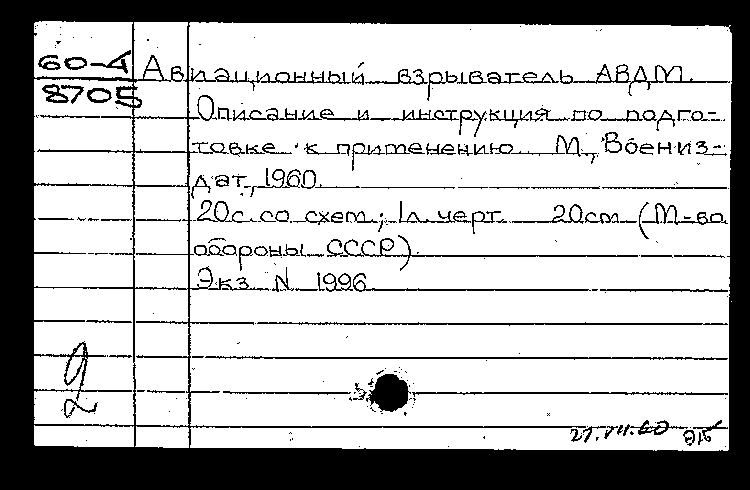 60-4 Авиационный взрыватель АВДМ.
8705
Описание и инструкция по подго-
товке к применению М., Воениз-
дат, 1960.
20с. со схем; 1л. черт. 20см (М-во
обороны СССР).
Экз N 1996
2
21.VII.60